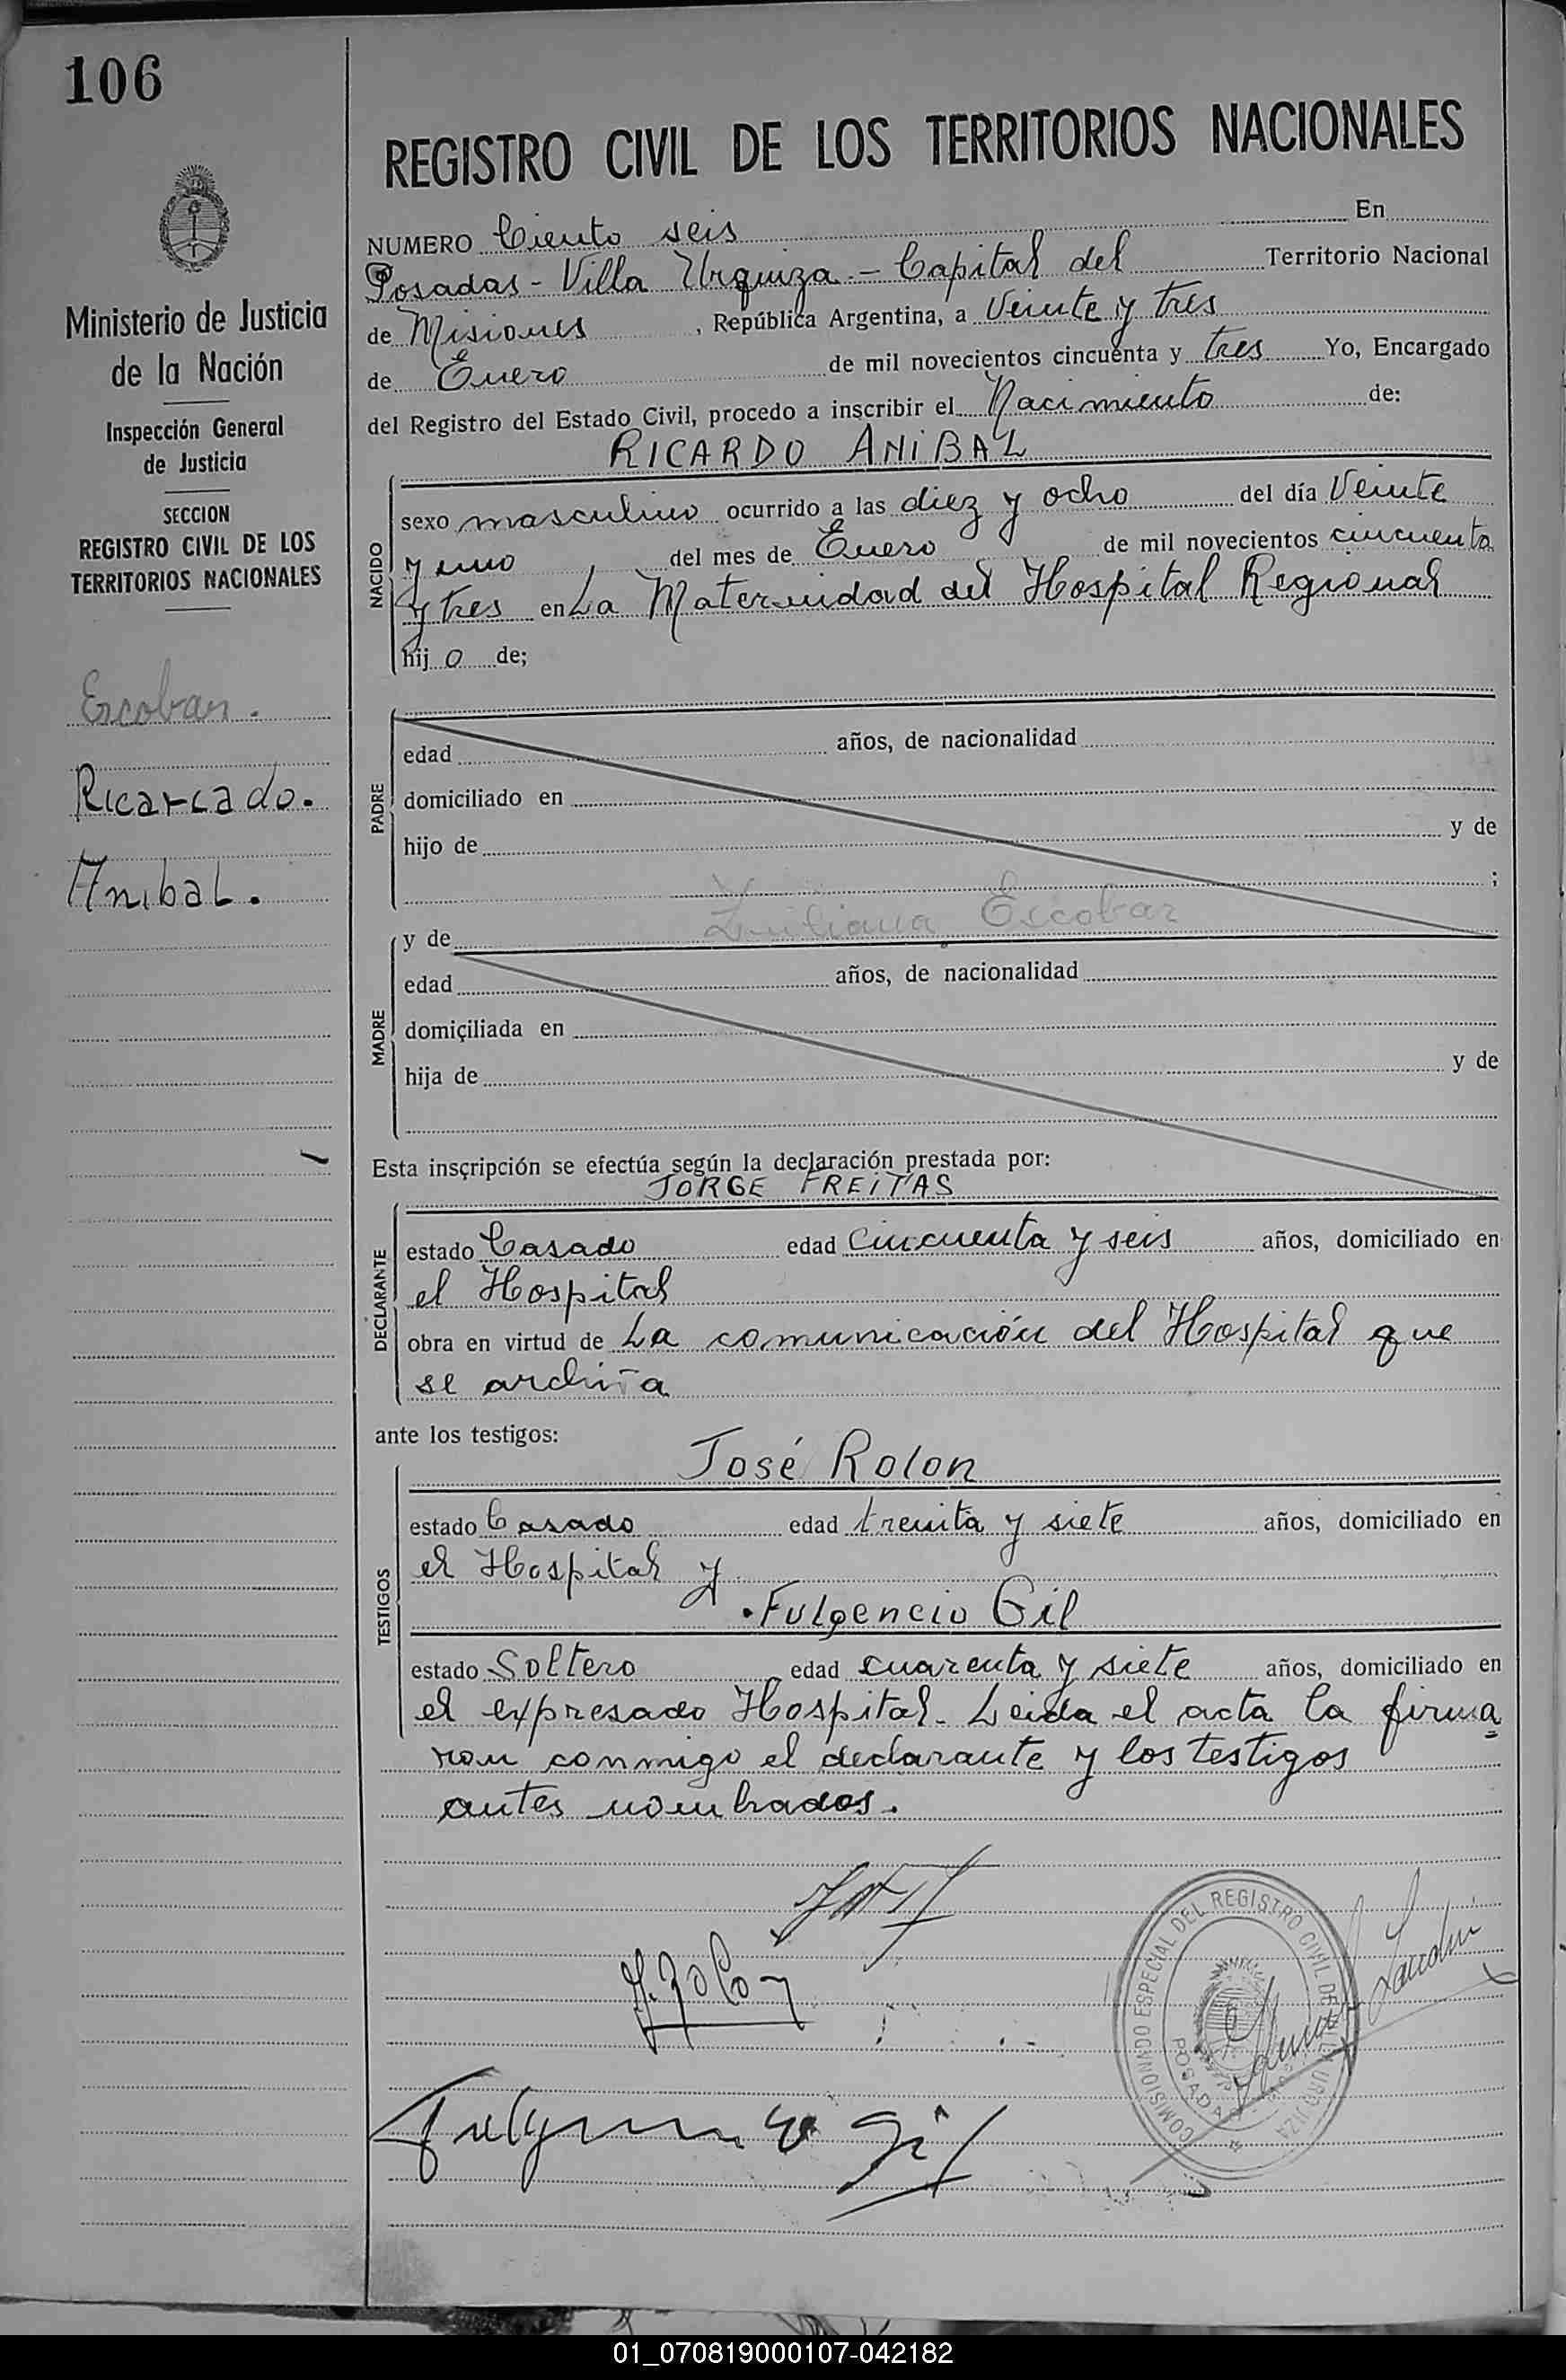 106
REGISTRO CIVIL DE LOS TERRITORIOS NACIONALES
Ministerio de Justicia
de la Nación
Inspección General
de Justicia
SECCION
REGISTRO CIVIL DE LOS
TERRITORIOS NACIONALES
Escobar.
Ricarcado.
Anibal.
NUMERO Ciento seis En
Posadas - Villa Urquiza - Capital del Territorio Nacional
de Misiones, República Argentina, a Veinte y tres
de Enero de mil novecientos cincuenta y tres Yo, Encargado
del Registro del Estado Civil, procedo a inscribir el Nacimiento de:
RICARDO ANIBAL
NACIDO
sexo masculino ocurrido a las diez y ocho del día Veinte
y uno del mes de Enero de mil novecientos cincuenta
y tres en La Maternidad del Hospital Regional
hij o de;
PADRE
edad años, de nacionalidad
domiciliado en
hijo de y de
;
MADRE
y de Escobar
edad años, de nacionalidad
domiciliada en
hija de y de
Esta inscripción se efectúa según la declaración prestada por:
JORGE FREITAS
DECLARANTE
estado Casado edad Cincuenta y seis años, domiciliado en
el Hospital
obra en virtud de La comunicación del Hospital que
se archiva
ante los testigos:
José Rolon
TESTIGOS
estado Casado edad treinta y siete años, domiciliado en
el Hospital y
Fulgencio Gil
estado Soltero edad cuarenta y siete años, domiciliado en
el expresado Hospital. Leida el acta la firma
ron conmigo el declarante y los testigos
antes nombrados.
J. Rolon
Fulgencio Gil
COMISIONADO ESPECIAL DEL REGISTRO CIVIL DE VILLA URQUIZA
POSADAS
01_070819000107-042182